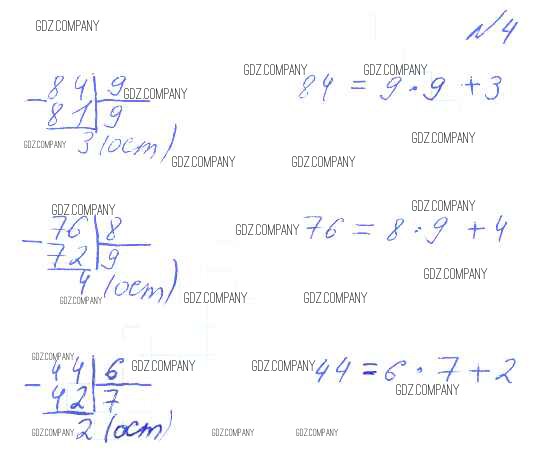 GDZ.COMPANY
№4
GDZ.COMPANY GDZ.COMPANY
84 | 9 GDZ.COMPANY 84 = 9 · 9 + 3
- 81 | 9
GDZ.COMPANY 3 (ост) GDZ.COMPANY
GDZ.COMPANY GDZ.COMPANY
GDZ.COMPANY GDZ.COMPANY
76 | 8 GDZ.COMPANY 76 = 8 · 9 + 4
- 72 | 9
GDZ.COMPANY
4 (ост)
GDZ.COMPANY GDZ.COMPANY GDZ.COMPANY
GDZ.COMPANY
44 | 6 GDZ.COMPANY GDZ.COMPANY 44 = 6 · 7 + 2
- 42 | 7 GDZ.COMPANY
GDZ.COMPANY 2 (ост) GDZ.COMPANY GDZ.COMPANY